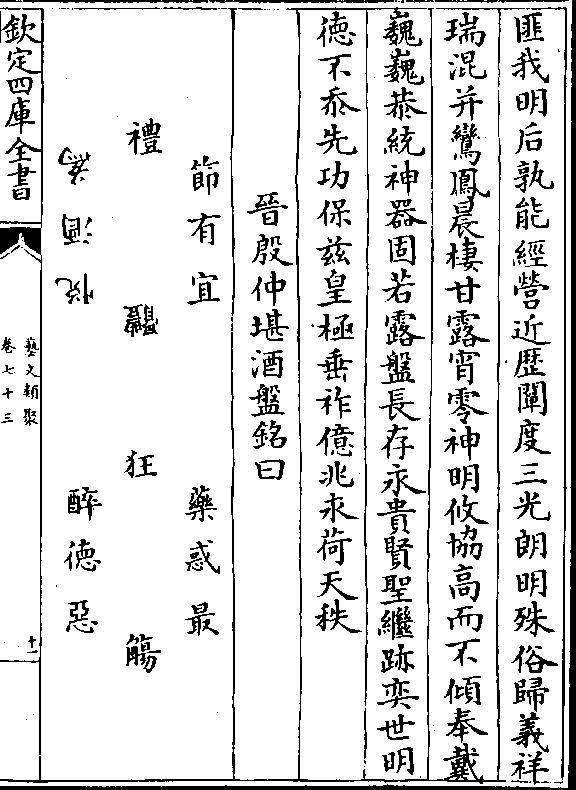 匪我明后孰能經營近歷闡度三光朗明殊俗歸義祥
瑞混并鸞鳳晨棲甘露宵零神明攸協高而不傾奉戴
巍巍恭統神器固若露盤長存永貴賢聖繼跡奕世明
德不忝先功保兹皇極垂祚億兆永荷天秩
晉殷仲堪酒盤銘曰
節有宜
藥惑最
禮
體
狂
觴
為酒悅
醉德惡
藝文類聚
卷七十三
十一
欽定四庫全書